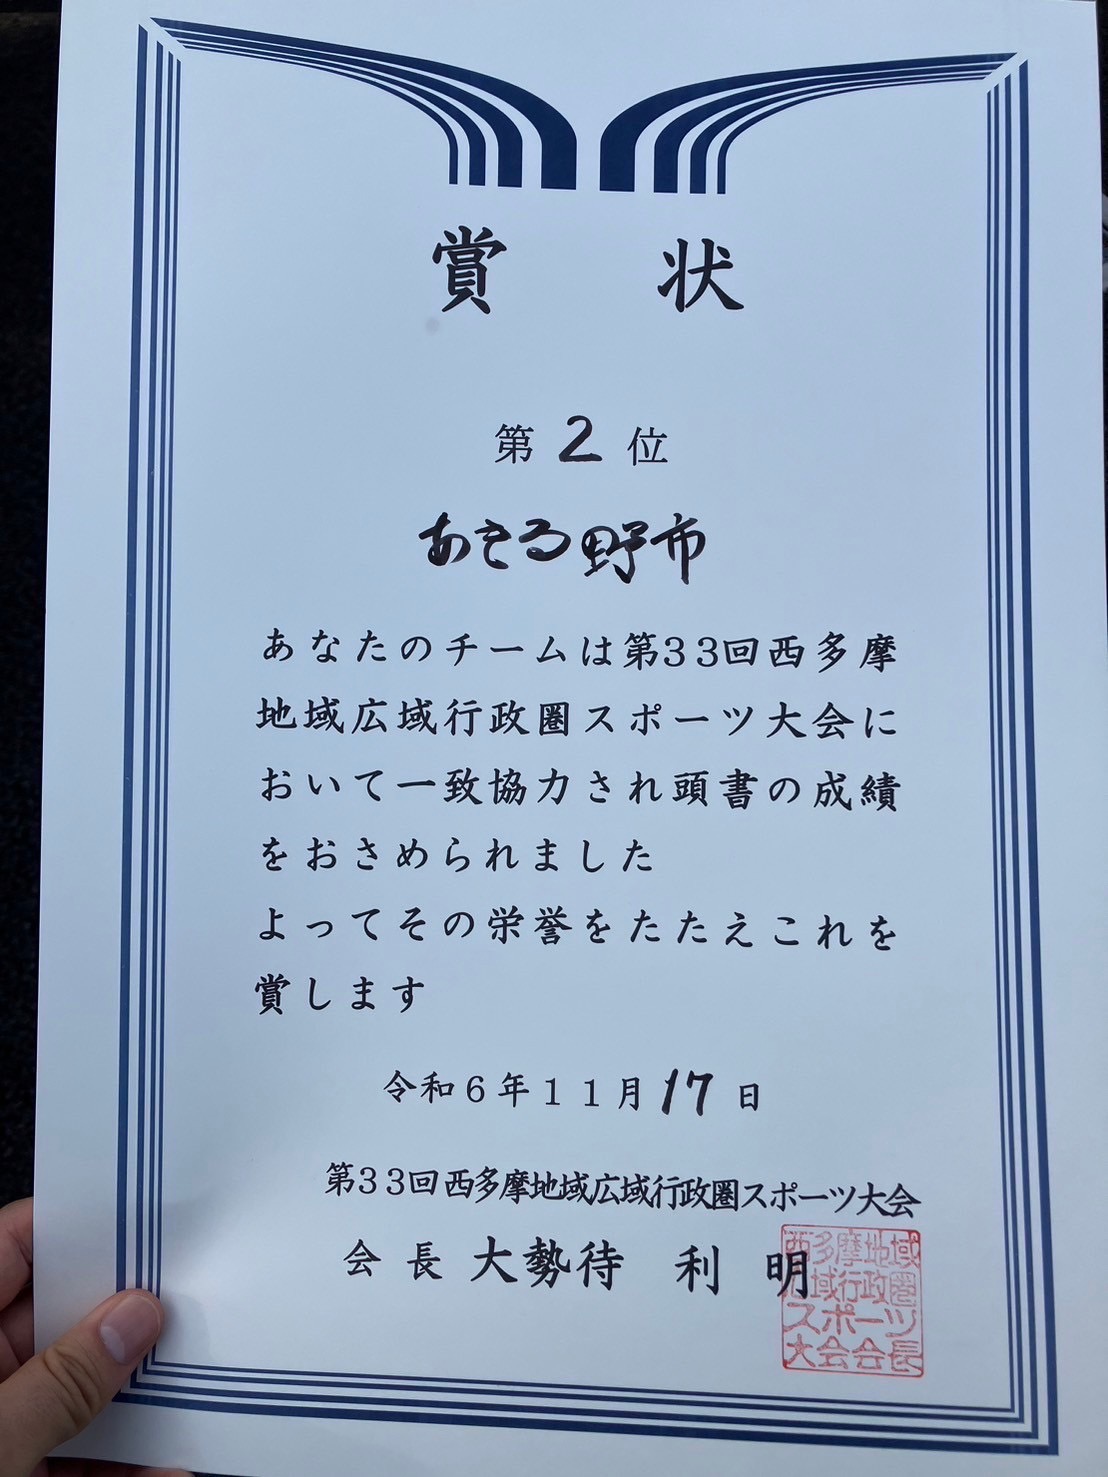 賞状
第2位
あきる野市
あなたのチームは第33回西多摩
地域広域行政圏スポーツ大会に
おいて一致協力され頭書の成績
をおさめられました
よってその栄誉をたたえこれを
賞します
令和6年11月17日
第33回西多摩地域広域行政圏スポーツ大会
会長 大勢待 利明
西多摩地域
広域行政圏
スポーツ
大会会長